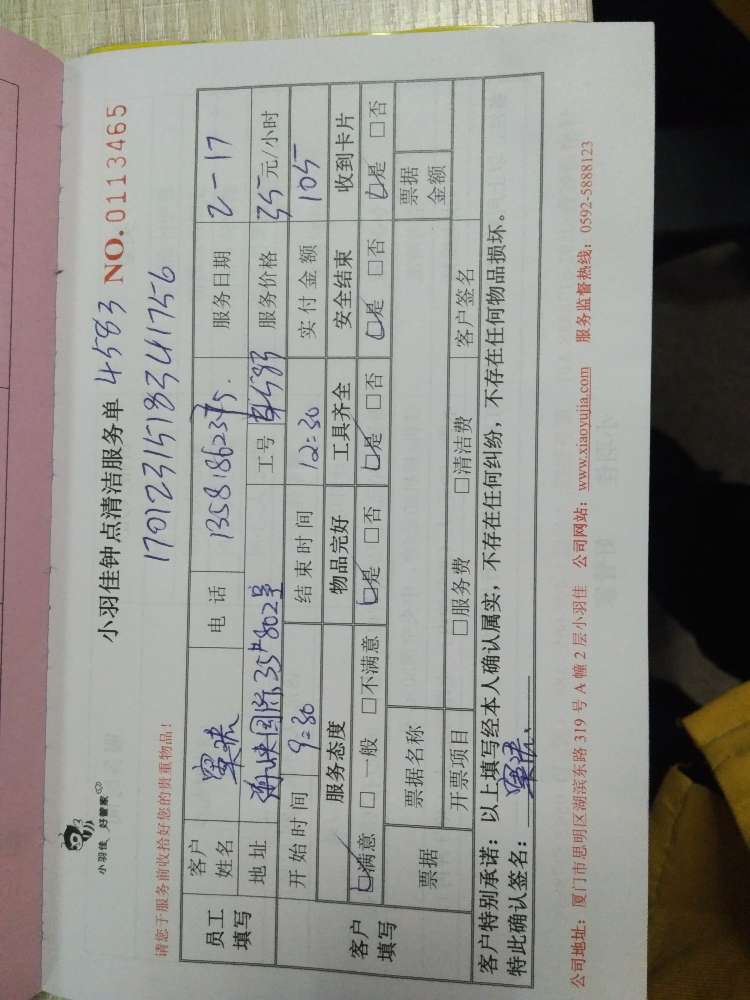 小羽佳 好管家
小羽佳钟点清洁服务单 4583 NO.0113465
1701231518341756
请您于服务前收拾好您的贵重物品！
员工填写 客户姓名 电话 13581862375. 服务日期 2-17
地址 海峡国际35#802号 工号 4583 服务价格 35元/小时
客户填写 开始时间 9=30 结束时间 12=30 实付金额 105
服务态度 物品完好 工具齐全 安全结束 收到卡片
☑满意 □一般 □不满意 ☑是 □否 ☑是 □否 ☑是 □否 ☑是 □否
票据 票据名称 票据金额
开票项目 □服务费 □清洁费 客户签名
客户特别承诺：以上填写经本人确认属实，不存在任何纠纷，不存在任何物品损坏。
特此确认签名：
公司地址：厦门市思明区湖滨东路 319 号 A 幢 2 层小羽佳 公司网站：www.xiaoyujia.com 服务监督热线：0592-5888123